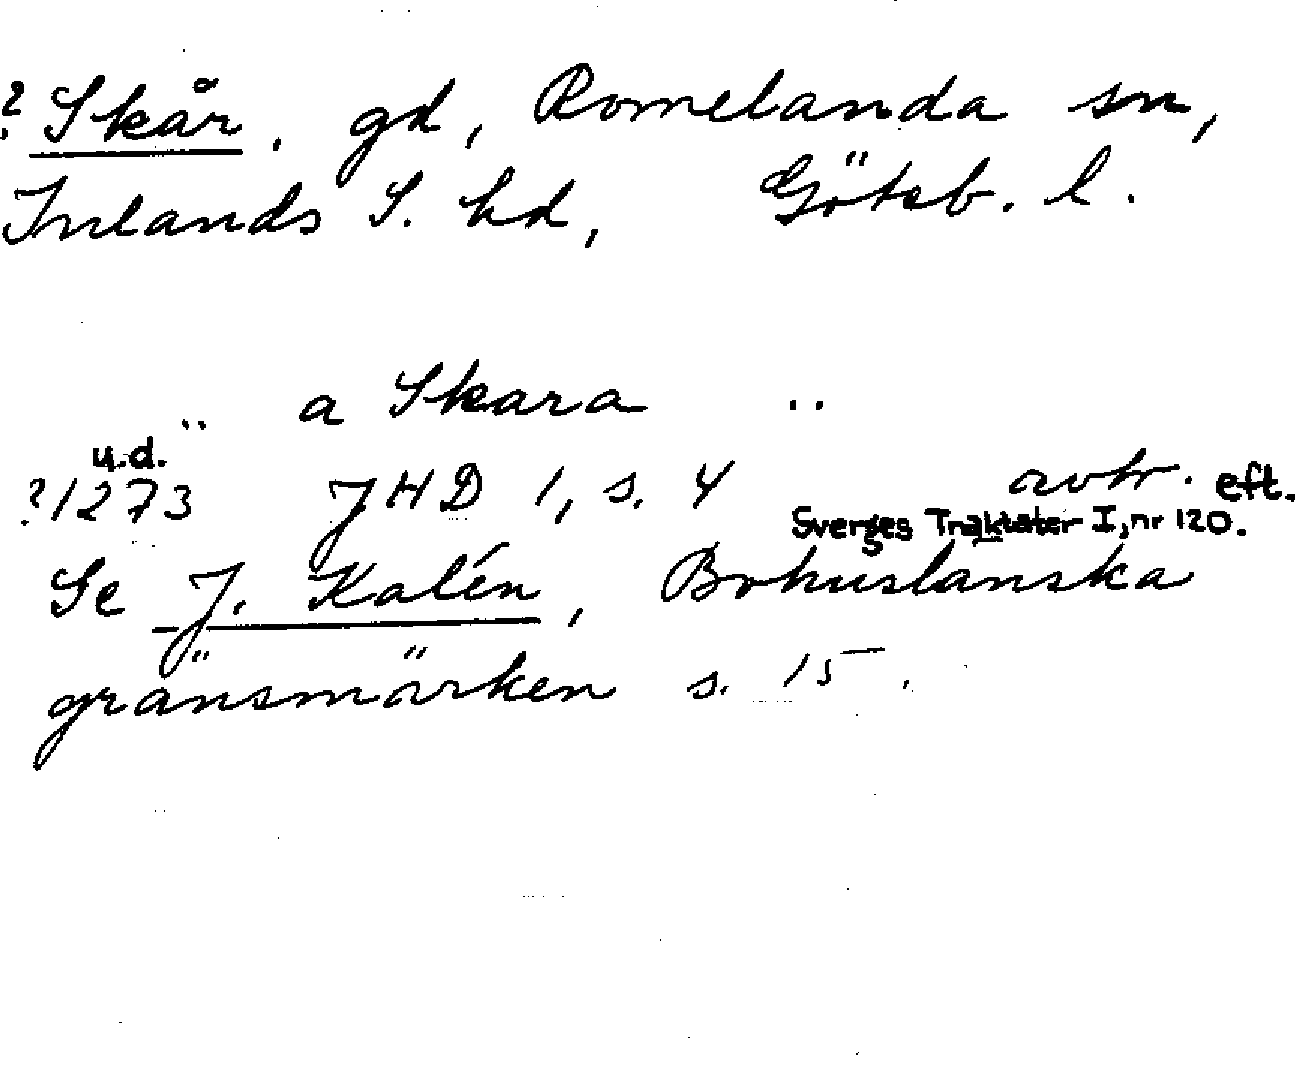 ? Skår, gd, Romelanda sn,
Inlands S. hd, Göteb. l.
.. a Skara ..
u.d.
?1273 JHD 1, s. 4 avtr. eft.
Sverges Traktater I, nr 120.
Se J. Kalén, Bohuslänska
gränsmärken s. 15.